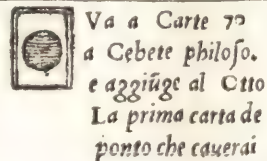 Va a Carte 72
a Cebete philoſo.
e aggiũge al Otto
La prima carta de
ponto che cauerai